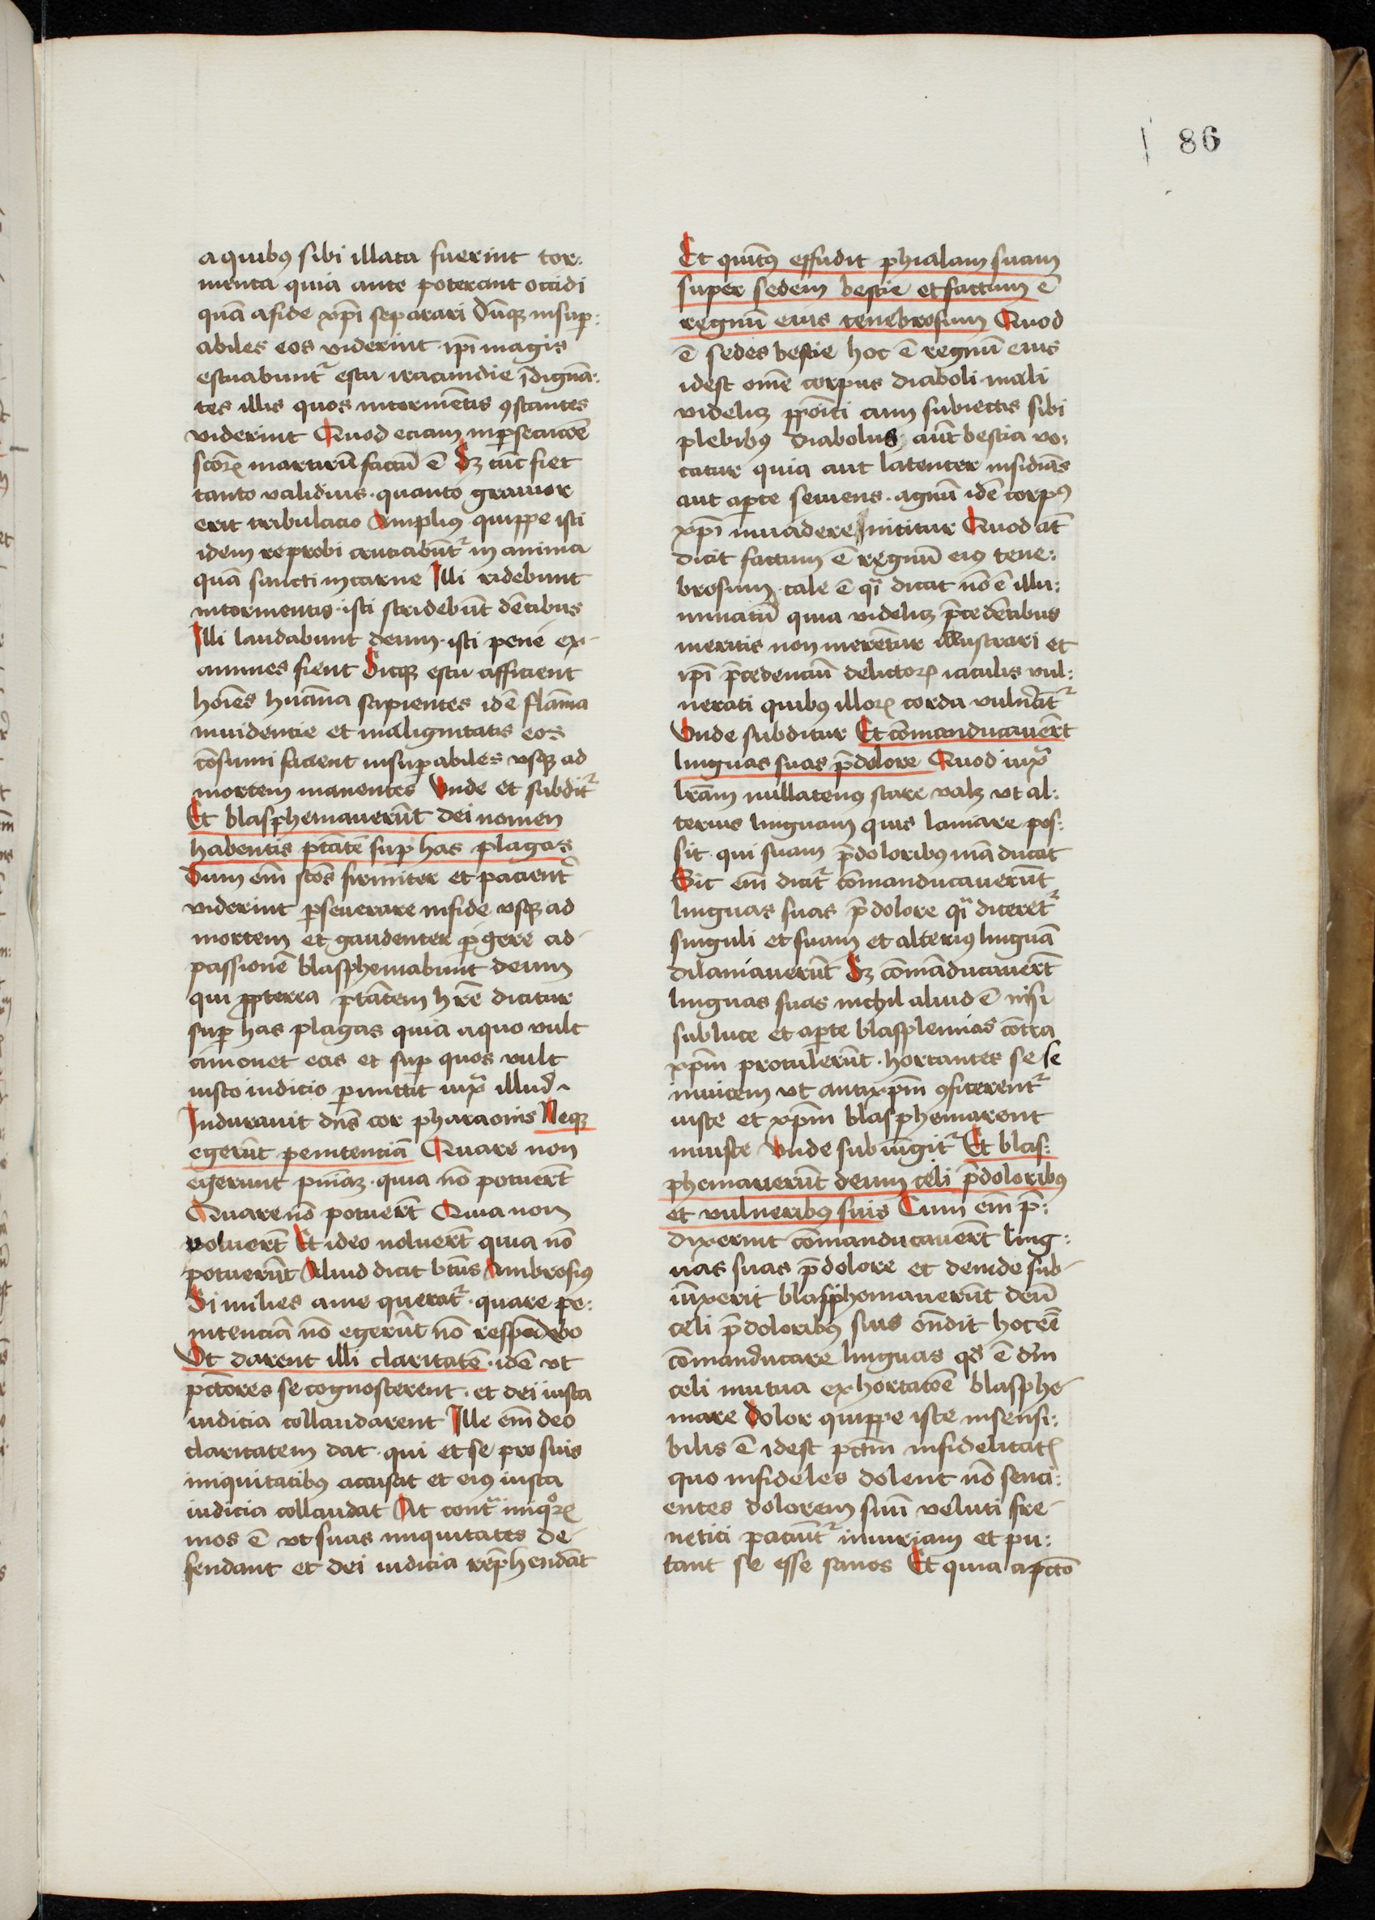 86
a quibꝰ sibi illata fuerint tor:
menta quia ante poterant occidi
quā a fide xp̄i separari Dūqꝫ insup̱:
abiles eos viderint · ip̄i magis
estuabuntᷣ estu iracundie īdignā:
tes illis quos in tormētis ꝯstantes
viderint Quod eciam in p̱secucōe
sc̄oꝝ martirū factū ē Sꝫ tūc fiet
tanto validius · quanto grauior
erit tribulacio Amplius quippe isti
idem reprobi cruciabūtᷣ in anima
quā sancti in carne Illi ridebunt
in tormentis · isti stridebūt dētibus
Illi laudabunt deum · isti pene ex-
animes fient Sicqꝫ estu afficient
hoīes huāna sapientes idē flāma
inuidentie et malignitatis eos
cōsumi facient insup̱abiles vsqꝫ ad
mortem manentes Vnde et subditᷣ
Et blasphemauerūt dei nomen
habentis ptātē sup̱ has plagas
Dum em̄ sc̄os firmiter et pacientᷣ
viderint p̱seuerare in fide vsqꝫ ad
mortem et gaudenter p̱gere ad-
passionē blasphemabunt deum
qui ꝓpterea ptātem hr̄e dicitur
sup̱ has plagas quia a quo vult
amouet eas et sup̱ quos vult
iusto iudicio p̱mittit iuxᷓ illud ·
Indurauit dn̄s cor pharaonis Neqꝫ
egerūt penitenciā Quare non
egerunt pn̄iaꝫ · quia nō potuerūt
Quare nō potuerūt Quia non
voluerūt Et ideo noluerūt quia nō
potuerūt Aliud dicit btūs Ambrosius
Si milies a me queratᷣ · quare pe:
nitenciā nō egerūt nō respōdebo
Vt darent illi claritatē · idē vt
pctōres se cognoscerent · et dei iusta
iudicia collaudarent Ille em̄ deo
claritatem dat · qui et se pro suis
iniquitatibꝰ accusat et eiꝰ iusta
iudicia collaudat At contᷓ iniqoꝝ
mos ē vt suas iniquitates de-
fendant et dei iudicia rep̄hendāt
Et quītꝰ effudit phialam suam
super sedem bestie et factum ē
regnū eius tenebrosum Quod
ē sedes bestie hoc ē regnū eius
idest om̄e corpus diaboli mali
videliꝫ p̄poīti cum subiectis sibi
plebibꝰ Diabolus aūt bestia vo:
catur quia aut latenter insidiās
aut ap̱te seuiens · agnū idē corpꝰ
xp̄i inuadere nititur Quod at̄
dicit factum ē regnū eiꝰ tene:
brosum · tale ē qᷓ dicat nō ē illu:
minatū quia videliꝫ p̄cedētibus
meritis non merētur illustrari et
ip̄i p̄cedenciū delictoꝝ iaculis vul:
nerati quibꝰ illoꝝ corda vulnerātᷣ
Vnde subditur Et cōmanducauerūt
linguas suas p̄ dolore Quod iuxᷓ
lrām nullatenꝰ stare valꝫ vt al:
terius linguam quis laniare pos:
sit · qui suam p̄ doloribꝰ māducat
Sic em̄ dicitᷣ cōmanducauerūt
linguas suas p̄ dolore qᷓ diceretᷣ
singuli et suam et alterius linguā
dilaniauerūt Sꝫ cōmāducauerūt
linguas suas nichil aliud ē nisi
sub luce et ap̱te blasphemias cōtra
xp̄m protulerūt · hortantes se se
inuicem vt antixp̄m ꝯfiterentᷣ
iuste et xp̄m blasphemarent
iniuste Vnde subiūgitᷣ Et blas:
phemauerūt deum celi p̄ doloribus
et vulneribꝰ suis Cum em̄ p̄:
dixerint cōmanducauerūt ling:
uas suas p̄ dolore et deinde sub-
iūxerit blasphemauerūt deū
celi p̄ doloribꝰ suis ōndit hoc eē̄
cōmanducare linguas qd̄ ē dm̄
celi mutua exhortatoē blasphe-
mare Dolor quippe iste insensi:
bilis ē idest pctm̄ infidelitatꝭ
quo infideles dolent nō senci:
entes dolorem suū veluti fre-
netici paciūtᷣ iniuriam et pu:
tant se esse sanos Et quia a pctō